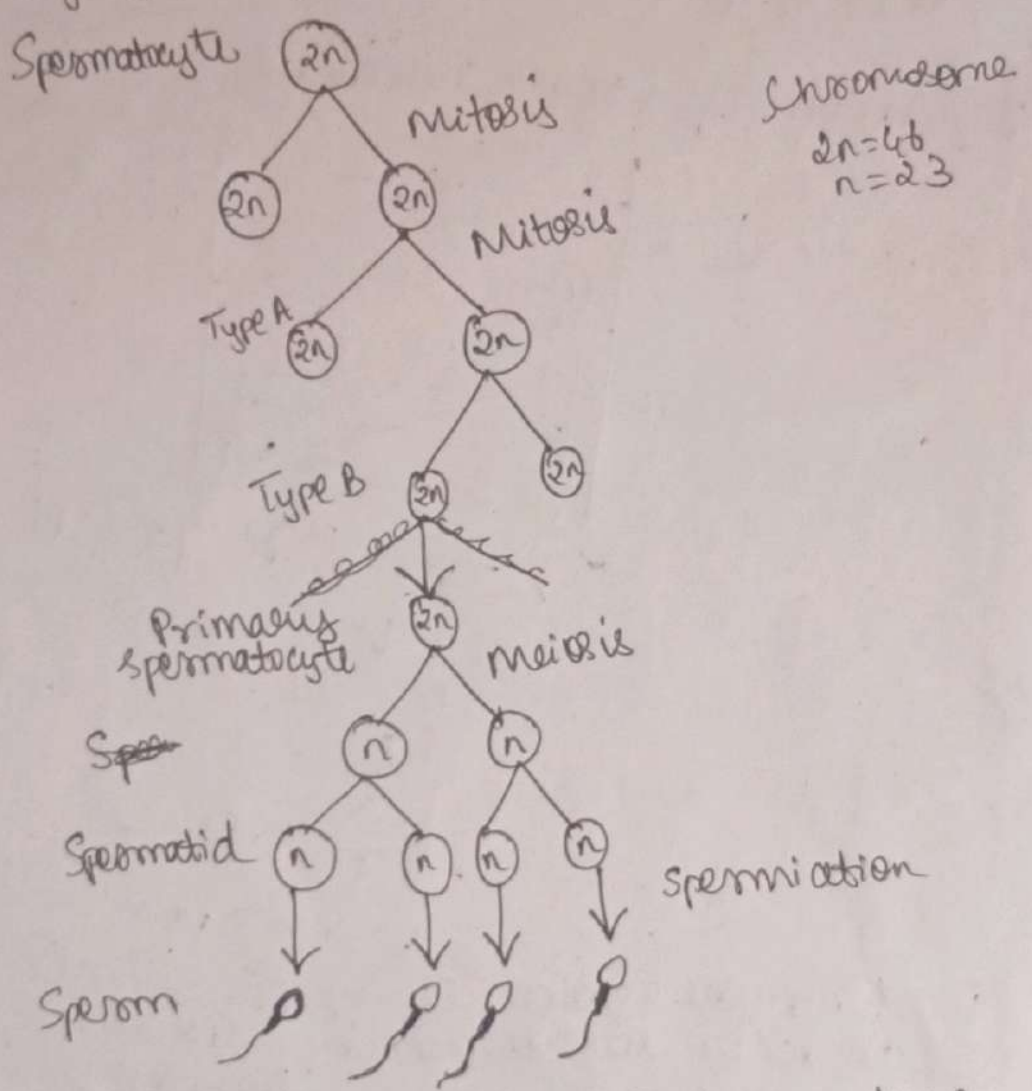 Spermatocyte
2n
Mitosis
Chromosome
2n=46
n=23
2n
2n
Mitosis
Type A
2n
2n
Type B
2n
2n
Primary
spermatocyte
2n
Meiosis
n
n
Spermatid
n
n
n
n
spermiation
Sperm